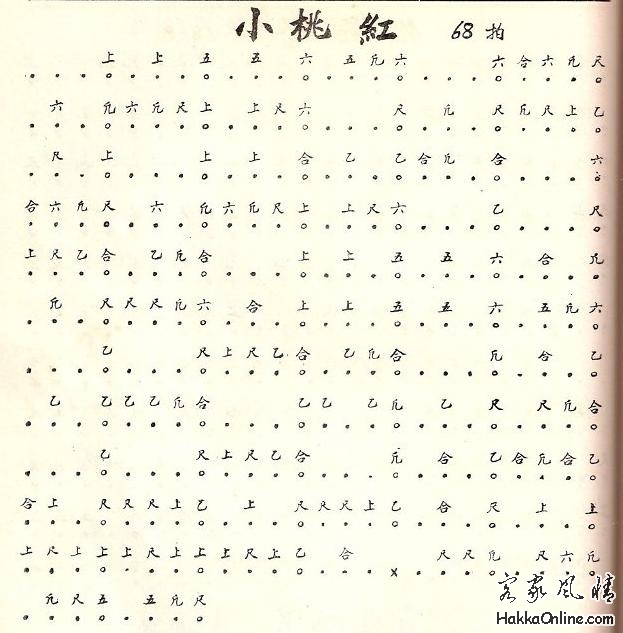 小桃紅 68拍
上 上 五 五 六 五 凡 六 六 合 六 凡 尺
六 凡 六 凡 尺 上 上 尺 六 尺 凡 尺 凡 尺 上 乙
尺 上 上 上 合 乙 乙 合 凡 合 六
合 六 凡 尺 六 凡 六 凡 尺 上 上 尺 六 乙 尺
上 尺 乙 合 乙 凡 合 上 上 五 五 六 合 凡
凡 尺 尺 尺 凡 六 合 上 上 五 五 六 五 凡 六
乙 尺 上 尺 乙 合 乙 凡 合 凡 合 乙
乙 乙 乙 乙 凡 合 乙 乙 乙 凡 乙 尺 尺 凡 合
乙 尺 上 尺 乙 合 凡 合 乙 合 凡 合 乙
合 上 尺 尺 尺 上 乙 上 尺 尺 尺 上 乙 合 尺 上 上
上 尺 上 上 上 尺 上 上 上 尺 上 乙 合 尺 尺 凡 尺 六 凡
凡 尺 五 五 凡 尺
客家風情
HakkaOnline.com